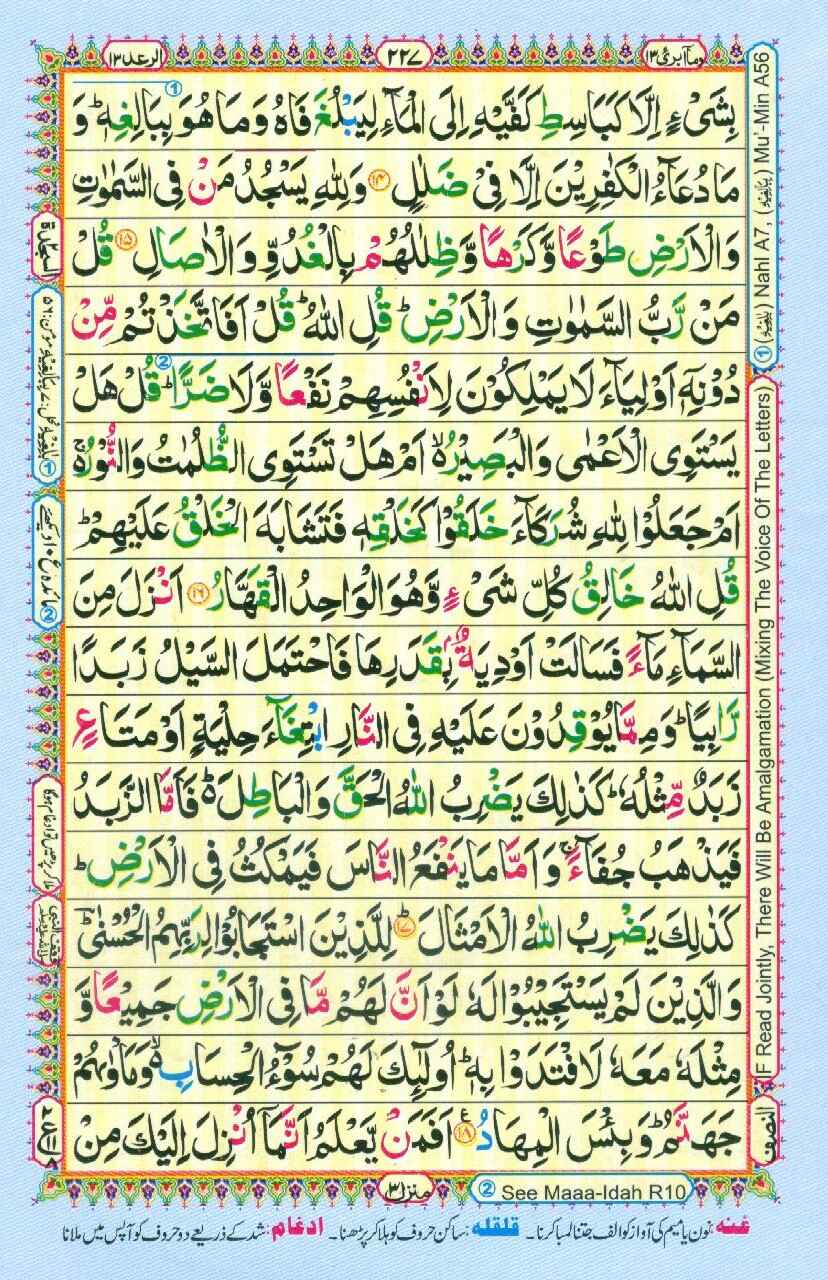 وماابرئ ١٣
٢٢٧
الرعد ١٣
بِشَیْءٍ اِلَّا كَبَاسِطِ كَفَّیْهِ اِلَى الْمَآءِ لِیَبْلُغَ فَاهُ وَمَا هُوَ بِبَالِغِهٖ ؕ وَ
مَا دُعَآءُ الْكٰفِرِیْنَ اِلَّا فِیْ ضَلٰلٍ ﴿١٤﴾ وَلِلّٰهِ یَسْجُدُ مَنْ فِی السَّمٰوٰتِ
وَالْاَرْضِ طَوْعًا وَّكَرْهًا وَّظِلٰلُهُمْ بِالْغُدُوِّ وَالْاٰصَالِ ﴿١٥﴾ قُلْ
مَنْ رَّبُّ السَّمٰوٰتِ وَالْاَرْضِ ؕ قُلِ اللّٰهُ ؕ قُلْ اَفَاتَّخَذْتُمْ مِّنْ
دُوْنِهٖۤ اَوْلِیَآءَ لَا یَمْلِكُوْنَ لِاَنْفُسِهِمْ نَفْعًا وَّلَا ضَرًّا ؕ قُلْ هَلْ
یَسْتَوِی الْاَعْمٰى وَالْبَصِیْرُ ۙ۬ اَمْ هَلْ تَسْتَوِی الظُّلُمٰتُ وَالنُّوْرُ ۚ۬
اَمْ جَعَلُوْا لِلّٰهِ شُرَكَآءَ خَلَقُوْا كَخَلْقِهٖ فَتَشَابَهَ الْخَلْقُ عَلَیْهِمْ ؕ
قُلِ اللّٰهُ خَالِقُ كُلِّ شَیْءٍ وَّهُوَ الْوَاحِدُ الْقَهَّارُ ﴿١٦﴾ اَنْزَلَ مِنَ
السَّمَآءِ مَآءً فَسَالَتْ اَوْدِیَةٌۢ بِقَدَرِهَا فَاحْتَمَلَ السَّیْلُ زَبَدًا
رَّابِیًا ؕ وَمِمَّا یُوْقِدُوْنَ عَلَیْهِ فِی النَّارِ ابْتِغَآءَ حِلْیَةٍ اَوْ مَتَاعٍ
زَبَدٌ مِّثْلُهٗ ؕ كَذٰلِكَ یَضْرِبُ اللّٰهُ الْحَقَّ وَالْبَاطِلَ ؕ۬ فَاَمَّا الزَّبَدُ
فَیَذْهَبُ جُفَآءً ۚ وَاَمَّا مَا یَنْفَعُ النَّاسَ فَیَمْكُثُ فِی الْاَرْضِ ؕ
كَذٰلِكَ یَضْرِبُ اللّٰهُ الْاَمْثَالَ ﴿١٧﴾ لِلَّذِیْنَ اسْتَجَابُوْا لِرَبِّهِمُ الْحُسْنٰى ؕ
وَالَّذِیْنَ لَمْ یَسْتَجِیْبُوْا لَهٗ لَوْ اَنَّ لَهُمْ مَّا فِی الْاَرْضِ جَمِیْعًا وَّ
مِثْلَهٗ مَعَهٗ لَافْتَدَوْا بِهٖ ؕ اُولٰٓىِٕكَ لَهُمْ سُوْٓءُ الْحِسَابِ ۙ۬ وَمَاْوٰىهُمْ
جَهَنَّمُ ؕ وَبِئْسَ الْمِهَادُ ﴿١٨﴾ اَفَمَنْ یَّعْلَمُ اَنَّمَاۤ اُنْزِلَ اِلَیْكَ مِنْ
① Nahl A7, (بٰلِغِیْهِ) Mu'-Min A56 (بِبَالِغِیْهِ)
IF Read Jointly, There Will Be Amalgamation (Mixing The Voice Of The Letters)
النصف
السجدة
ملا کر پڑھیں تو ادغام ہوگا
منزل ٣
② See Maaa-Idah R10
غنه: نون یا میم کی آواز کو الف جتنا لمبا کرنا۔ قلقله: ساکن حروف کو ہلا کر پڑھنا۔ ادغام: شد کے ذریعے دو حروف کو آپس میں ملانا